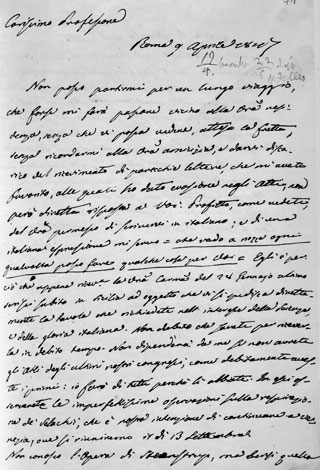 Carissimo Professore
Roma 9 Aprile 1847
Non posso partirmi per un lungo viaggio,
che forse mi farà passare vicino alla Vra resi-
denza, senza che vi possa vedere, attesa la fretta,
senza ricordarmi alla Vra amicizia e darvi disca-
rico del ricevimento di parecchie lettere, che mi avete
favorito, alle quali ho dato evasione negli Atti, non
però diretta risposta a Voi. Profitto, come vedete,
del Vro permesso di scrivervi in italiano; e di una
italiana espressione mi servo = che vado a nozze ogni
qualvolta posso fare qualche cosa per Voi = Egli è per
ciò che appena ricev. la Vra Carma del 24 Gennajo ultimo
scrissi subito in Sicilia ad oggetto che vi si spedisse diretta-
mente la tavola che richiedete nell' interesse della Scienza
e della gloria italiana. Non dubito che sarete per ricever-
la in debito tempo. Non dipenderà da me se non avrete
gli atti degli ultimi nostri congressi, come debitamente aves-
te i primi: io farò di tutto perchè li abbiate. In essi os-
serverete le imperfettissime osservazioni sulla respirazio-
ne dei Selachi, che è nostra intenzione di continuare a Ve-
nezia, ove ci riuniremo il dì 13 Settembre.
Non conosco l'Opera di